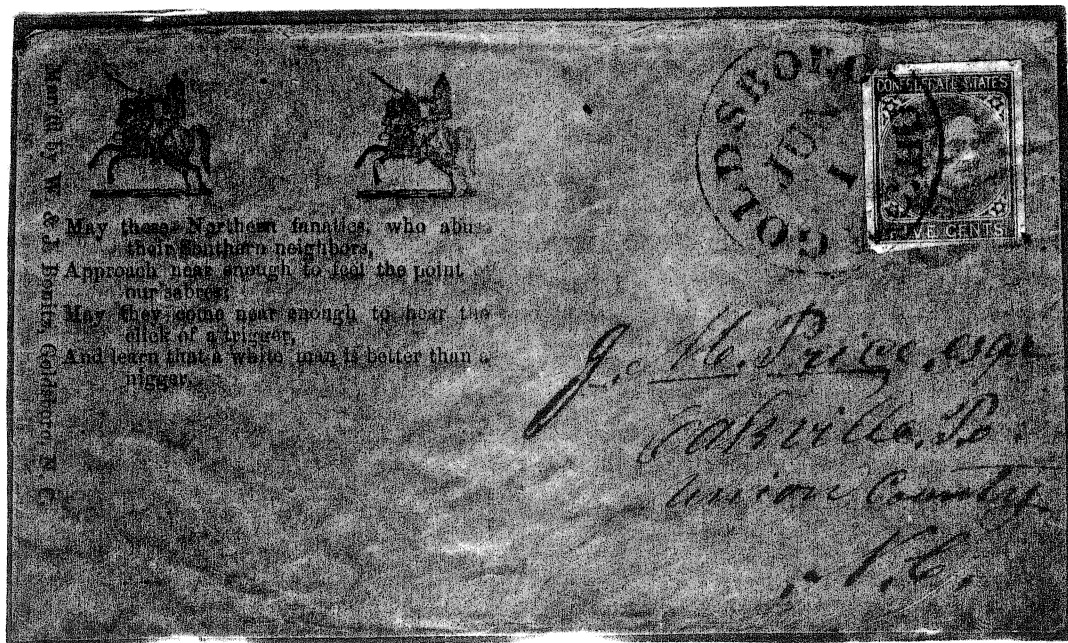 by W. & J. Bonitz, N. C
May these Northern fanatics, who abuse
their Southern neighbors,
Approach near enough to feel the point of
our sabres;
May they come near enough to hear the
click of a trigger,
And learn that a white man is better than a
nigger.
GOLDSBORO
JUN
1
CONFEDERATE STATES
FIVE CENTS
Price, esqr
Oakville, Po
Union County
N.C.